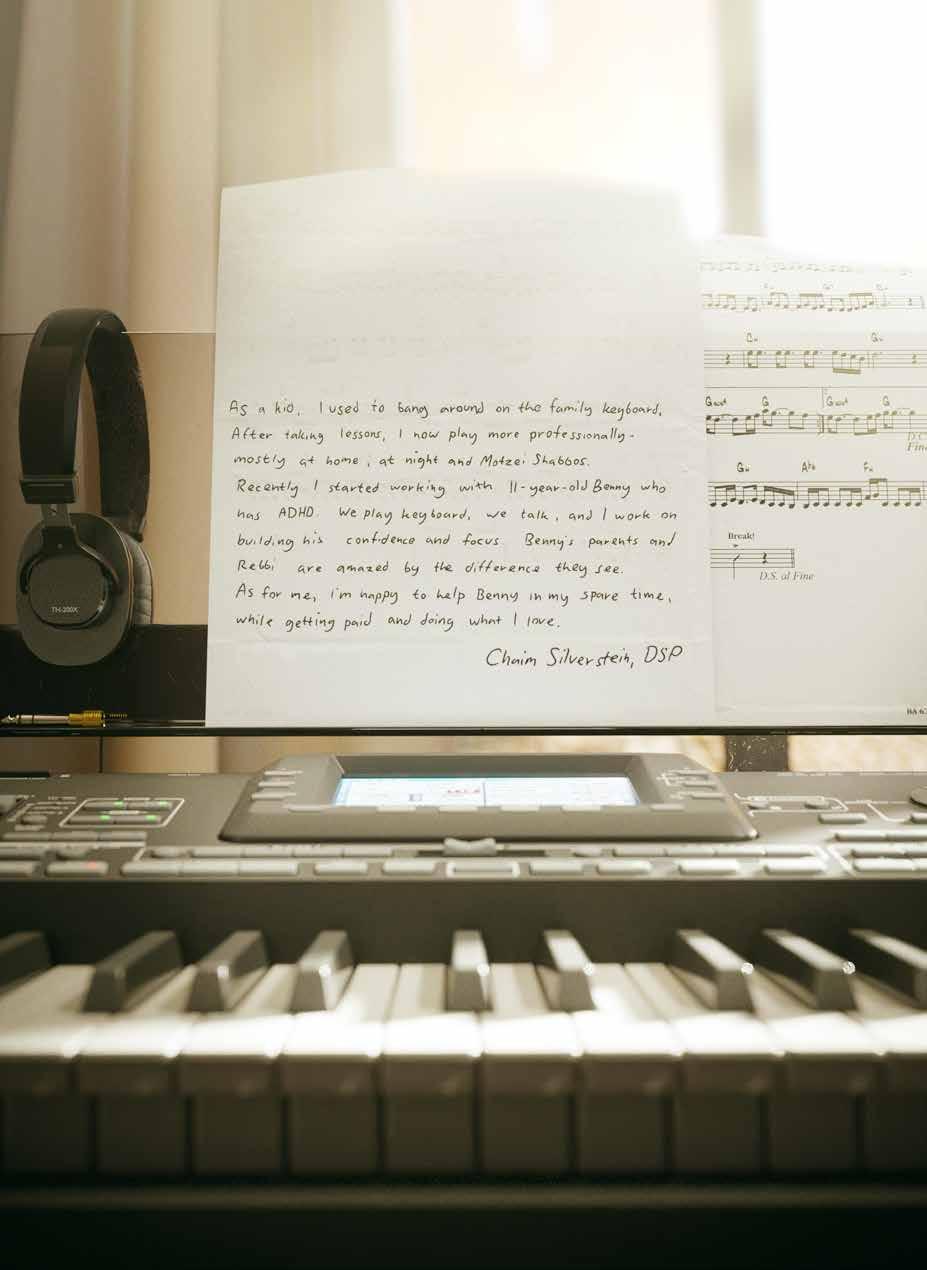 As a kid, I used to bang around on the family keyboard.
After taking lessons, I now play more professionally-
mostly at home, at night and Motzei Shabbos.
Recently I started working with 11-year-old Benny who
has ADHD. We play keyboard, we talk, and I work on
building his confidence and focus. Benny's parents and
Rebbi are amazed by the difference they see.
As for me, i'm happy to help Benny in my spare time,
while getting paid and doing what I love.
Chaim Silverstein, DSP
TH-200X
D.C.
Fine
Break!
D.S. al Fine